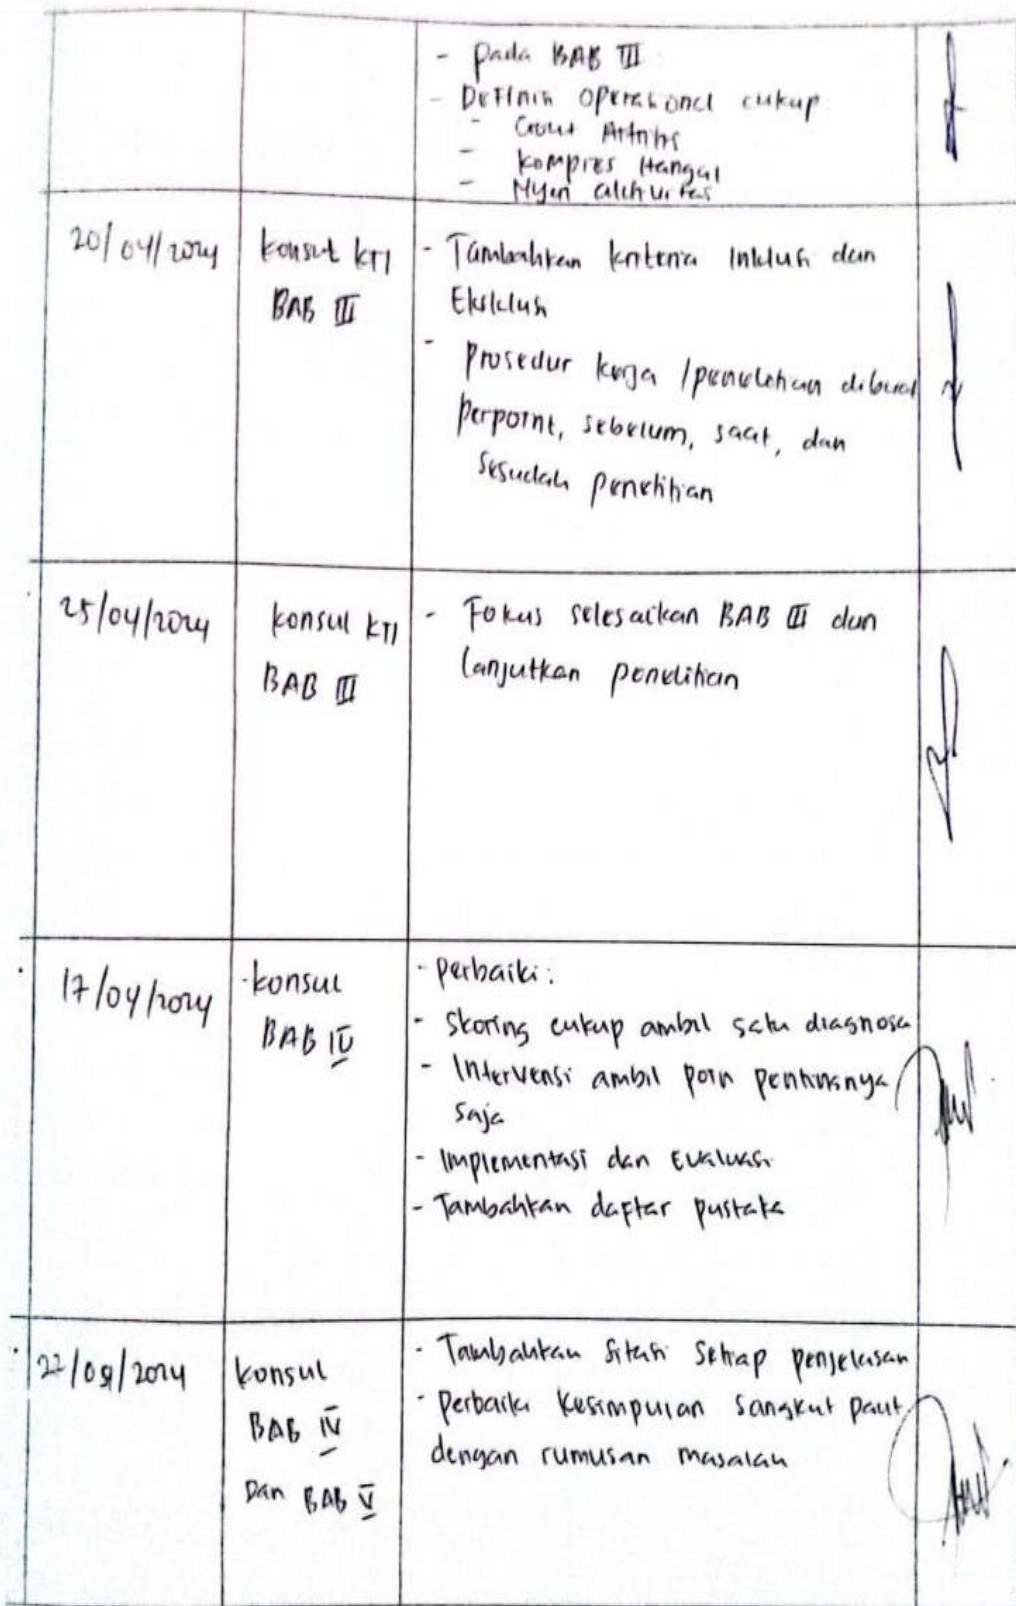 - pada BAB III
- Definisi operasional cukup
- Gout Artritis
- Kompres Hangat
- Nyeri
20/04/2024
konsul KTI
BAB III
- Tambahkan kriteria Inklusi dan
Eksklusi
- Prosedur kerja /penelitian dibuat
perpoint, sebelum, saat, dan
sesudah penelitian
25/04/2024
konsul KTI
BAB III
- Fokus selesaikan BAB III dan
lanjutkan penelitian
17/04/2024
konsul
BAB IV
- perbaiki:
- Skoring cukup ambil satu diagnosa
- Intervensi ambil poin pentingnya
saja
- Implementasi dan Evaluasi
- Tambahkan daftar pustaka
konsul
BAB IV
Dan BAB V
- Tambahkan sitasi setiap penjelasan
- perbaiki kesimpulan sangkut paut
dengan rumusan masalah